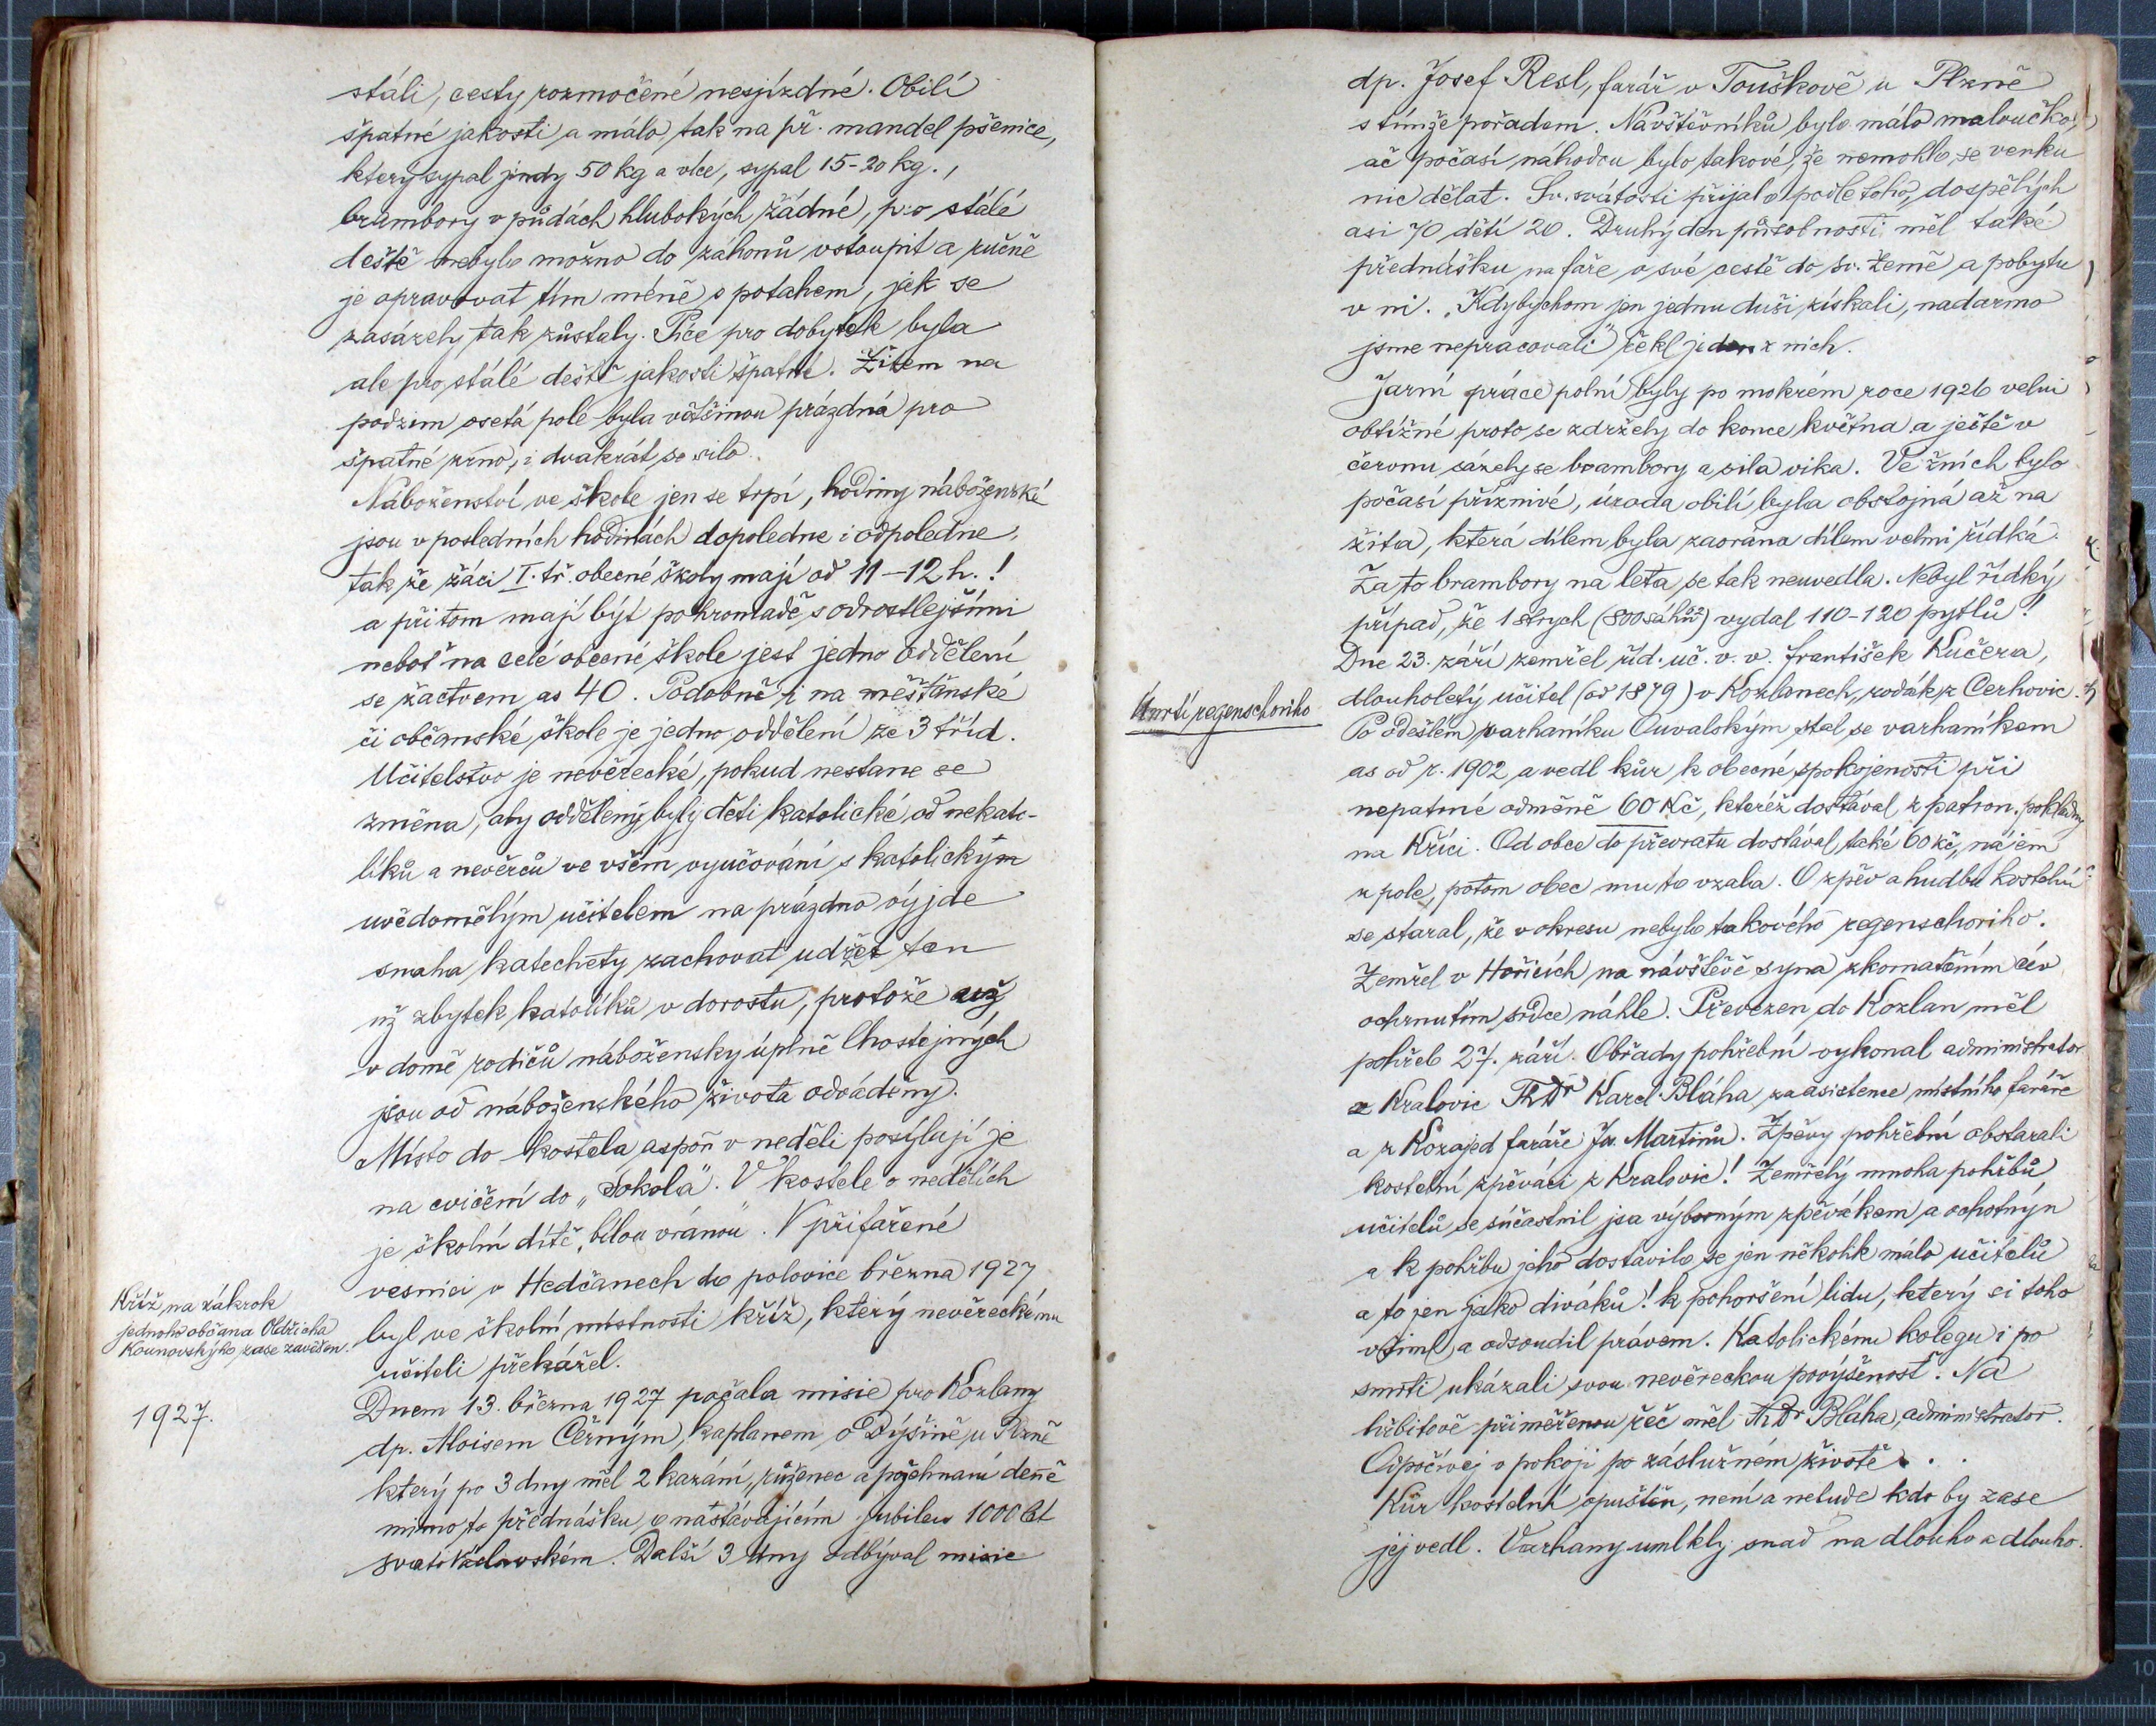 stáli, cesty rozmočené nesjízdné. Obilí
špatné jakosti a málo, tak na př. mandel pšenice,
který sypal jindy 50 kg a více, sypal 15-20 kg.,
brambory v půdách hlubokých žádné, pro stálé
deště nebylo možno do záhonů vstoupit a ručně
je opravovat tím méně s potahem, jak se
zasázely, tak zůstaly. Píce pro dobytek byla
ale pro stálé deště jakosti špatné. Žitem na
podzim osetá pole byla většinou prázdná pro
špatné zrno, i dvakrát se silo.
Náboženství ve škole jen se trpí, hodiny náboženské
jsou v posledních hodinách dopoledne i odpoledne,
tak že žáci I. tř. obecné školy mají od 11-12 h.!
a při tom mají být pohromadě s odrostlejšími
neboť na celé obecné škole jest jedno oddělení
se žactvem as 40. Podobně i na měšťanské
či občanské škole je jedno oddělení ze 3 tříd.
Učitelstvo je nevěrecké, pokud nestane se
změna, aby odděleny byly děti katolické od nekato-
líků a nevěrců ve všem vyučování s katolickým
uvědomělým učitelem na prázdno výjde
snaha katechety zachovat udržet ten
už zbytek katolíků v dorostu, protože už
v domě rodičů nábožensky úplně lhostejných
jsou od náboženského života odváděny.
Místo do kostela aspoň v neděli posýlají je
na cvičení do „Sokola". V kostele o nedělích
je školní dítě „bílou vránou". V přifařené
vesnici v Hedčanech do polovice března 1927
Kříž na zákrok
jednoho občana Oldřicha
Kounovského zase zavěšen.
byl ve školní místnosti kříž, který nevěreckému
učiteli překážel.
1927.
Dnem 13. března 1927 počala misie pro Kozlany
dp. Aloisem Černým, kaplanem v Dýšině u Plzně
který po 3 dny měl 2 kázání, růženec a požehnaní denně
mimo to přednášku o nastávajícím jubileu 1000 let
svatováclavském. Další 3 dny odbýval misie
dp. Josef Resl, farář v Touškově u Plzně
s tímže pořadem. Návštěvníků bylo málo maloučko,
ač počasí náhodou bylo takové, že nemohlo se venku
nic dělat. Sv. svátosti přijalo podle toho, dospělých
asi 70 dětí 20. Druhý den působnosti měl také
přednášku na faře o své cestě do sv. Země a pobytu
v ní. „Kdybychom jen jednu duši získali, nadarmo
jsme nepracovali" řekl jeden z nich.
Jarní práce polní byly po mokrém roce 1926 velmi
obtížné proto se zdržely do konce května a ještě v
červnu sázely se brambory a sila vika. Ve žních bylo
počasí příznivé, úroda obilí byla obstojná až na
žita, která dílem byla zaorána dílem velmi řídká.
Za to brambory na leta se tak neuvedla. Nebyl řídký
případ, že 1 strych (800 sáhů²) vydal 110-120 pytlů!
Dne 23. září zemřel říd. uč. v. v. František Kučera,
Úmrtí regenschoriho
dlouholetý učitel (od 1879) v Kozlanech, rodák z Cerhovic.
Po odešlém varhaníku Ouvalským stal se varhaníkem
as od r. 1902 a vedl kůr k obecné spokojenosti při
nepatrné odměně 60 Kč, kteréž dostával z patron. pokladny
na Kříci. Od obce do převratu dostával také 60 kč, nájem
z pole, potom obec mu to vzala. O zpěv a hudbu kostelní
se staral, že v okresu nebylo takového regenschoriho.
Zemřel v Hořicích na návštěvě syna zkornatěním cév
ochrnutím srdce náhle. Převezen do Kozlan měl
pohřeb 27. září. Obřady pohřební vykonal administrator
z Kralovic ThDr Karel Bláha za asistence místního faráře
a z Kožajed faráře Jar. Martinů. Zpěvy pohřební obstarali
kostelní zpěváci z Kralovic! Zemřelý mnoha pohřbů
učitelů se súčastnil jsa výborným zpěvákem a ochotným
a k pohřbu jeho dostavilo se jen několik málo učitelů
a to jen jako diváků! k pohoršení lidu, který si toho
všiml a odsoudil právem. Katolickému kolegu i po
smrti ukázali svou nevěreckou povýšenost. Na
hřbitově přiměřenou řeč měl ThDr Bláha, administrator.
Odpočívej v pokoji po záslužném životě . . .
Kůr kostelní opuštěn, není a nebude kdo by zase
jej vedl. Varhany umlkly snad na dlouho a dlouho.